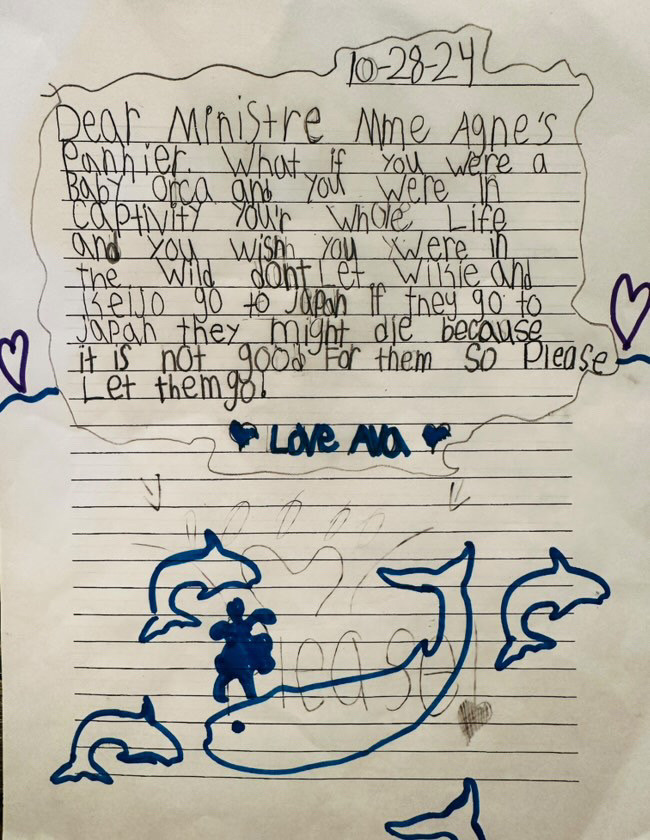 10-28-24
Dear Ministre Mme Agne's
Pannier. What if you were a
Baby orca and you were in
captivity your whole Life
and you wish you were in
the wild dont Let Wikie and
Keijo go to Japan If they go to
Japan they might die because
it is not good For them So Please
Let them go!
Love Ava
Please!